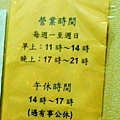 營業時間
每週一至週日
早上：11時～14時
晚上：17時～21時
午休時間
14時～17時
(遇有事公休)